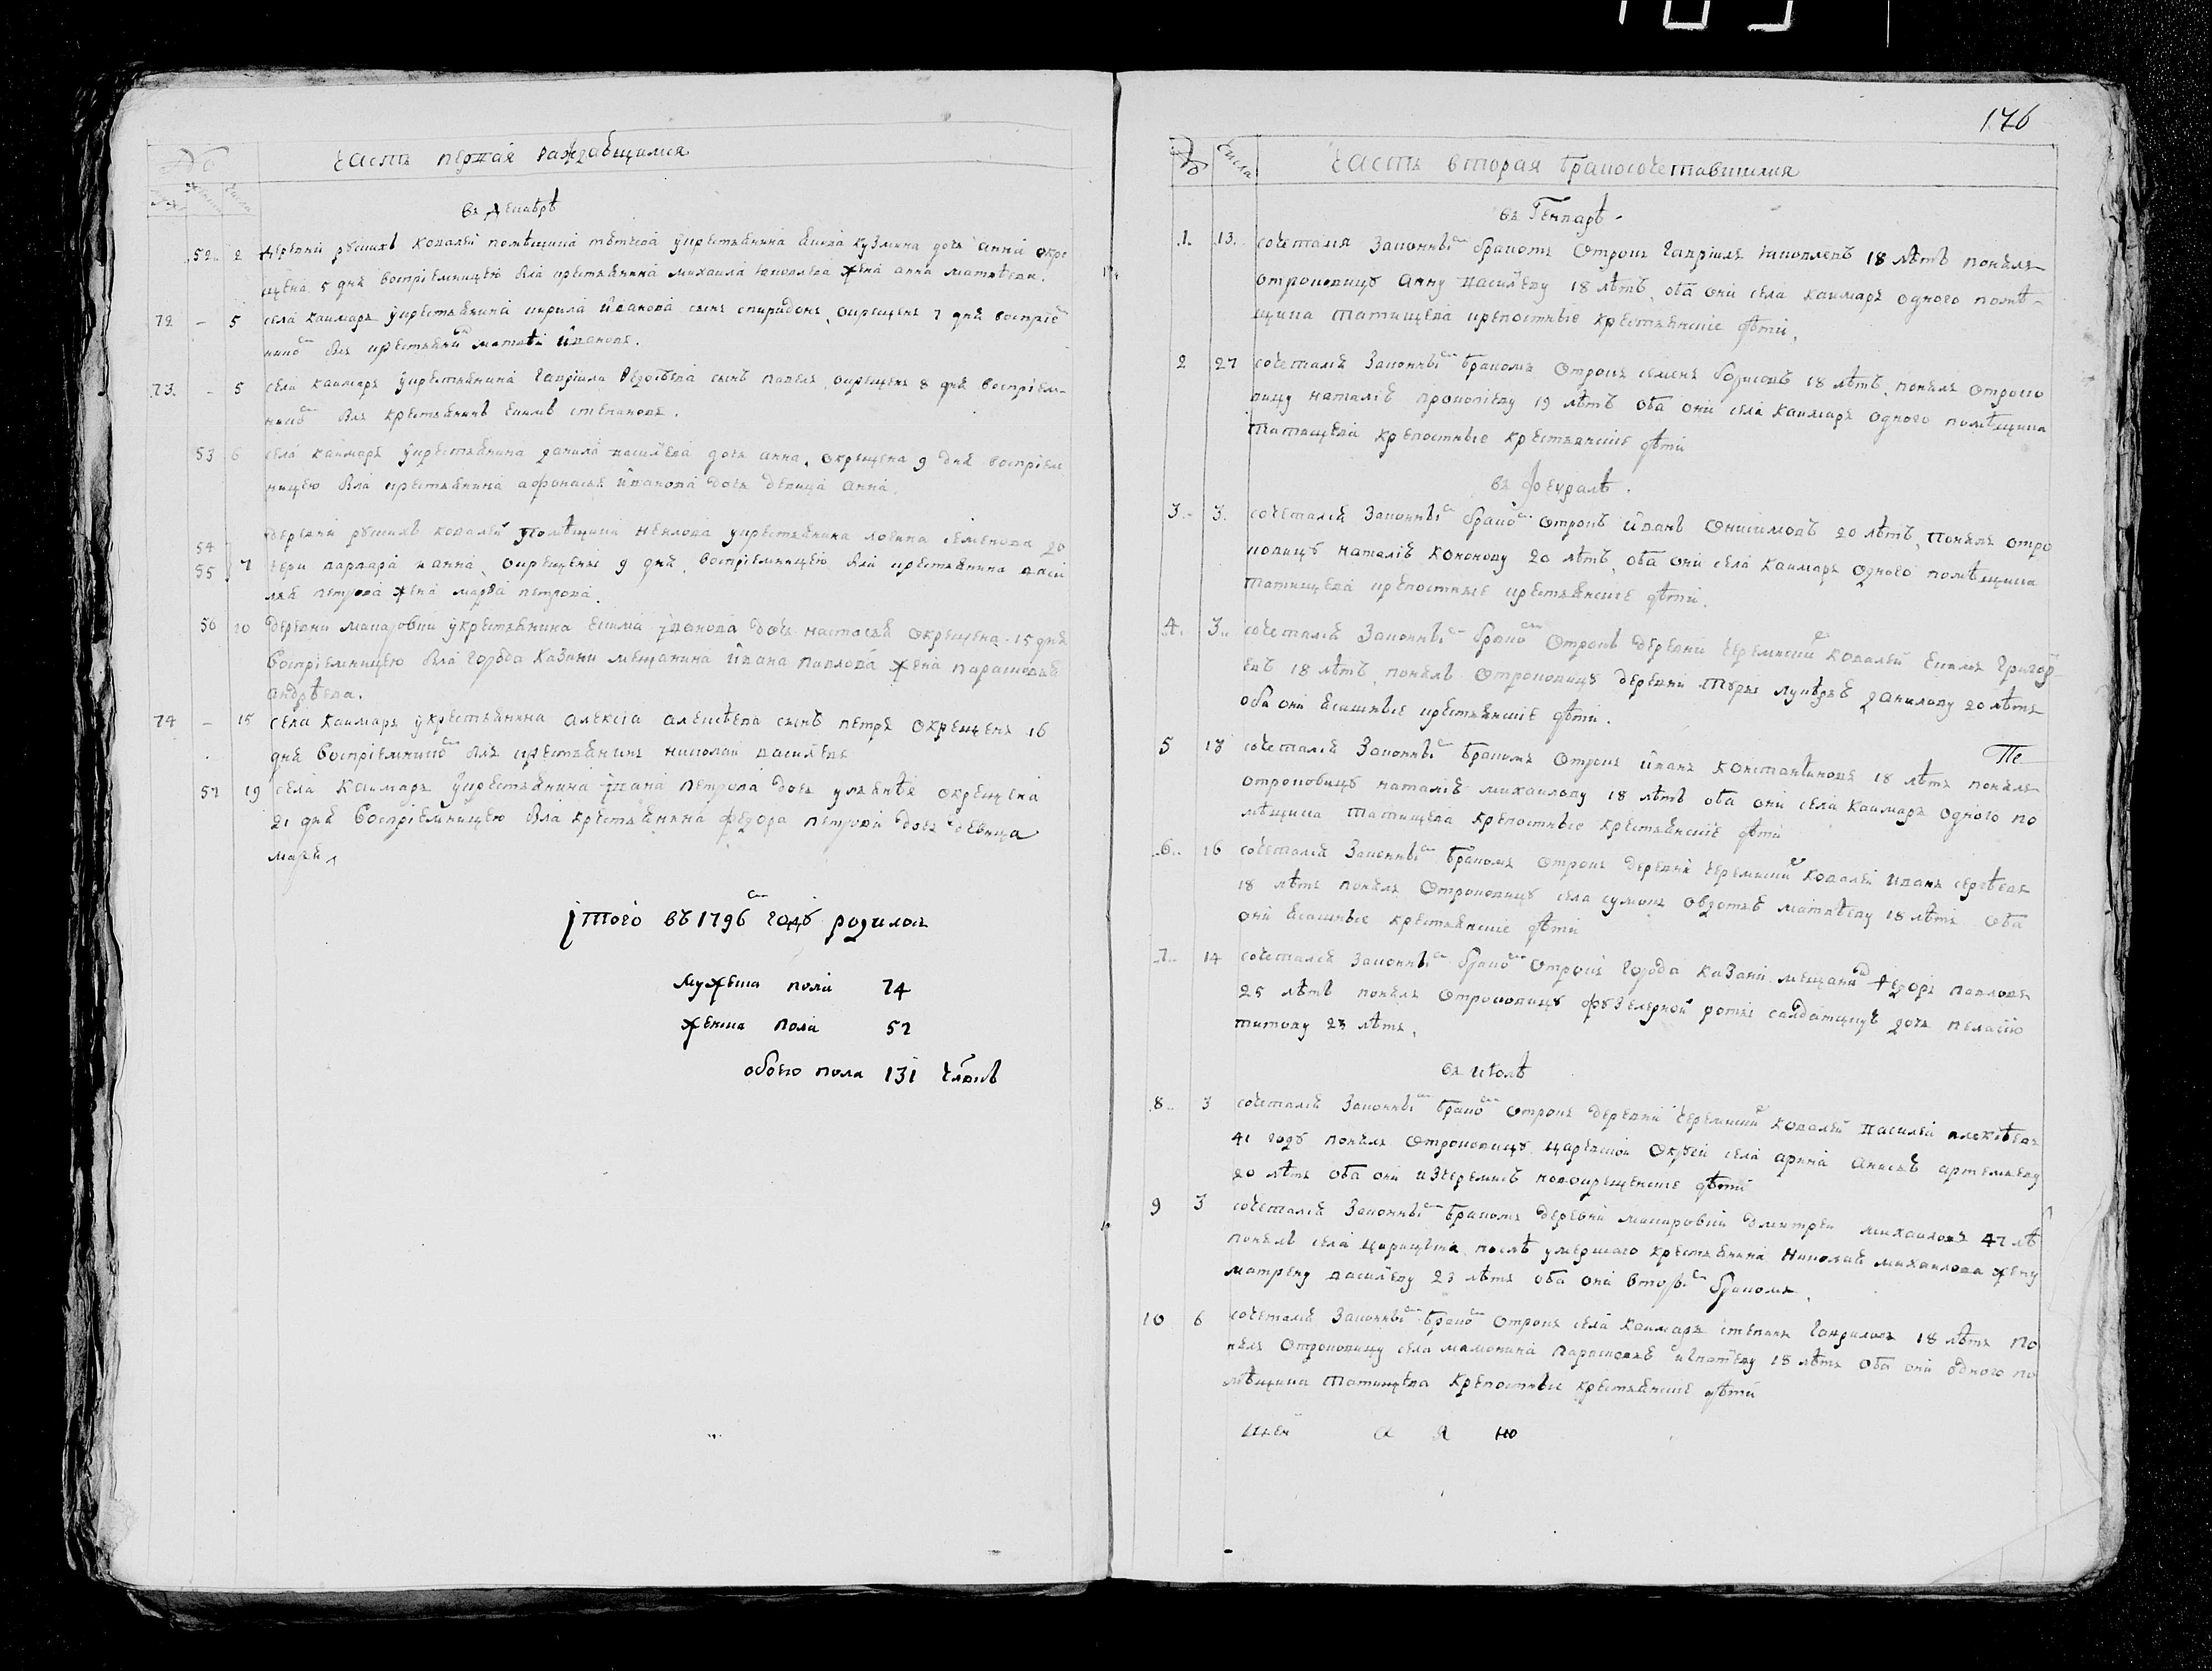 №
Числа
часть первая раждающимся
въ декабрѣ
52 2 деревни рускихъ ковалей помѣщика укрестьянина кузмина дочь анна окре
щена 5 дня воспріемницею была крестьянина михаила яковлева жена анна матвѣева.
72 - 5 села каимаръ укрестьянина кирила иванова сынъ спиридонъ, окрещенъ 7 дня воспріе
мнико былъ крестьяни матвѣй ивановъ.
73. - 5 села каимаръ укрестьянина гавріила сынъ павелъ окрещенъ 8 дня воспріем-
нико былъ крестьянинъ екимъ степановъ.
53 6 села каимаръ укрестьянина данила васильева дочь анна, окрещена 9 дня воспріем
ницею была крестьянина афонасья иванова дочь девица анна.
54 деревни рускихъ ковалей помѣщика неклова укрестьянина логина семенова до
55 7 чери варвара и анна, окрещены 9 дня, воспріемницею была крестьянина васи
лья петрова жена марфа петрова.
56 10 деревни макаровки укрестьянина екима іванова дочь настасья окрещена 15 дня
воспріемницею была города казани мещанина ивана павлова жена парасковья
андрѣева.
74 - 15 села каимаръ укрестьянина алексіа алексѣева сынъ петръ окрещенъ 16
дня воспріемнико былъ крестьянинъ николаи васильевъ
57 19 села каимаръ укрестьянина івана петрова дочь ульянѣя окрещена
21 дня воспріемницею была крестьянина федора петрова дочь девица
марья
ітого въ 1796 годѹ родилось
мужеска пола 74
женска пола 57
обоего пола 131 члвкъ
176
№ Числа часть вторая бракосочетавшимся
въ Генварѣ -
1. 13. сочетался законны бракомъ отрокъ гавріилъ яковлевъ 18 лѣтъ понялъ
отроковицѹ анну васильеву 18 лѣтъ, оба они села каимаръ одного помѣ-
щика татищева крепостные крестьянскіе дѣти.
2 27 сочетался законны бракомъ отрокъ семенъ борисовъ 18 лѣтъ, понялъ отроко
вицу наталію прокопіеву 19 лѣтъ оба они села каимаръ одного помѣщика
татищева крепостные крестьянскіе дѣти
въ февралѣ.
3. 3. сочетался законны брако отрокъ иванъ онисимовъ 20 лѣтъ, понялъ отро
ковицѹ наталію кононову 20 лѣтъ, оба они села каимаръ одного помѣщика
татищева крепостные крестьянскіе дѣти.
4. 3. сочетался законны брако отрокъ деревни черемиски ковалей екимъ григорь
евъ 18 лѣтъ, понялъ отроковицѹ деревни данилову 20 лѣтъ
оба они ясашные крестьянскіе дѣти.
5 13 сочетался законны бракомъ отрокъ иванъ константиновъ 18 лѣтъ понялъ Пе
отроковицѹ наталію михаилову 18 лѣтъ оба они села каимаръ одного по
мѣщика татищева крепостные крестьянскіе дѣти
6. 16 сочетался законны бракомъ отрокъ деревни черемиски ковалей иванъ сергѣевъ
18 лѣтъ понялъ отроковицѹ села сумокъ овдотью матвѣеву 18 лѣтъ оба
они ясашные крестьянскіе дѣти
7. 14 сочетался законны брако отрокъ города казани мещани федоръ павловъ
25 лѣтъ понялъ отроковицѹ фѹзелерной роты салдатцкѹю дочь пелагію
титову 23 лѣтъ.
въ иѹлѣ
8. 3 сочетался законны брако отрокъ деревни черемиски ковалей василей алексѣевъ
41 годѹ понялъ отроковицѹ царевкок окрѹги села арина анисью артемьеву
20 лѣтъ оба они изчеремисъ новокрещенскіе дѣти
9 3 сочетался законны бракомъ деревни макаровки дмитреи михаиловъ 47 лѣ
понялъ села царицына послѣ умершаго крестьянина николая михаилова жену
матрену васильеву 23 лѣтъ оба они вторы бракомъ.
10 6 сочетался законны брако отрокъ села каимаръ степанъ гавриловъ 18 лѣтъ по
нялъ отроковицу села мамонина парасковью игнатьеву 18 лѣтъ оба они одного по
мѣщика татищева крепостные крестьянскіе дѣти